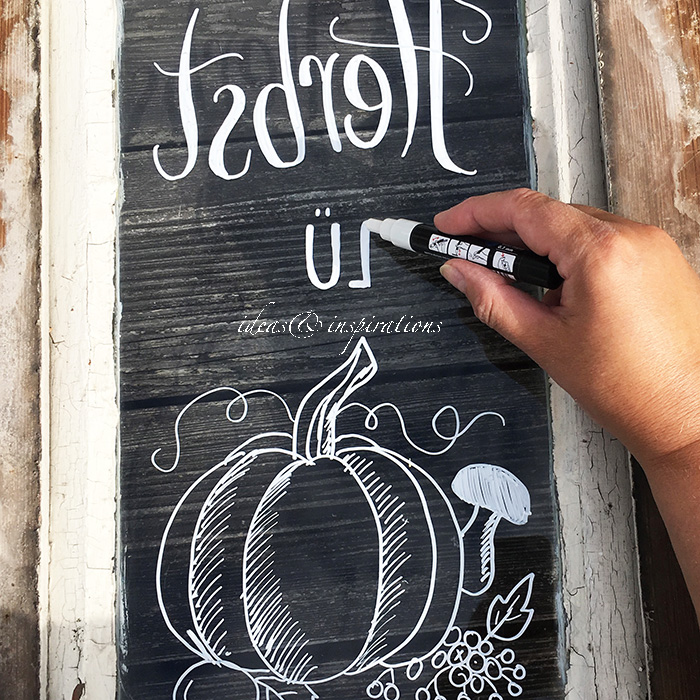 Herbst
LÜ
ideas & inspirations